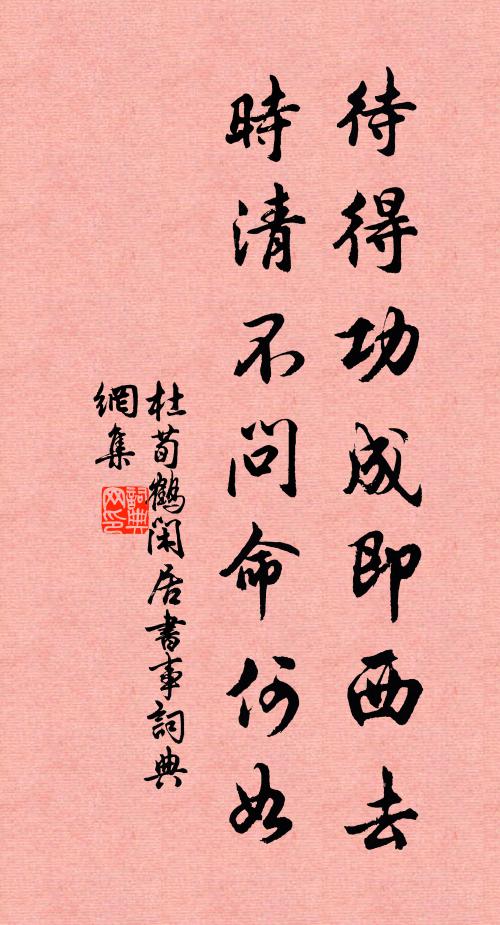 待得功成即西去
時清不問命何如
杜荀鶴閑居書事詞典
網集
詞典
网印